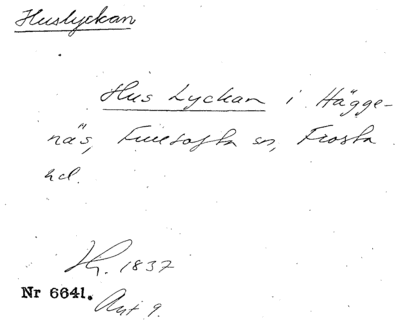 Huslyckan
Hus Lyckan i Hägge-
näs, Fulltofta sn, Frosta
hd.
Hr. 1837
Nr 6641.
Ant 9.